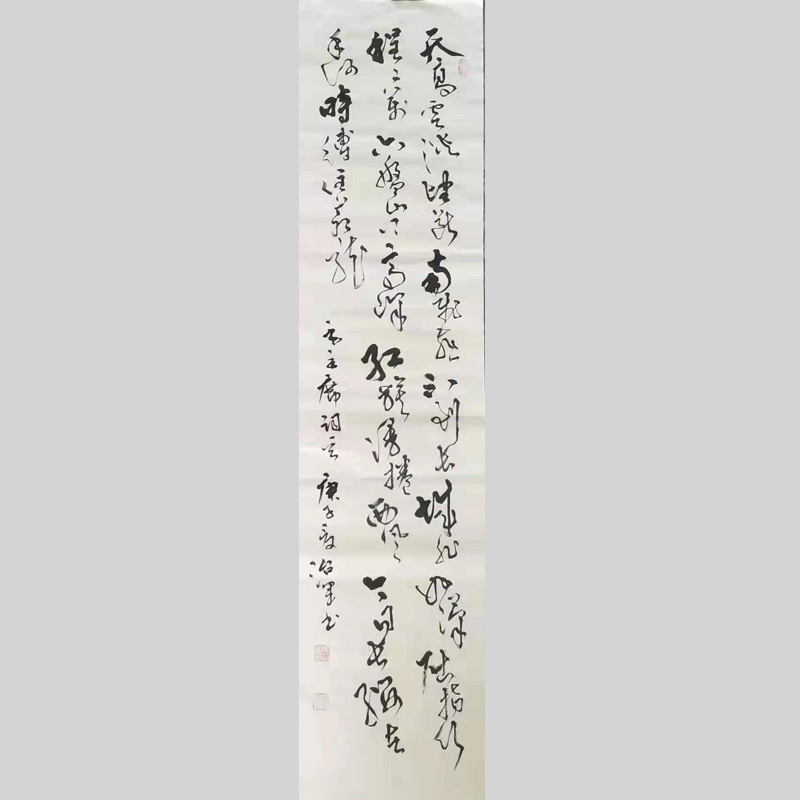 天高雲淡望斷南飛雁不到長城非好漢屈指行
程二萬六盤山上高峰紅旗漫捲西風今日長纓在
手何時縛住蒼龍 毛主席詞 庚子夏 书